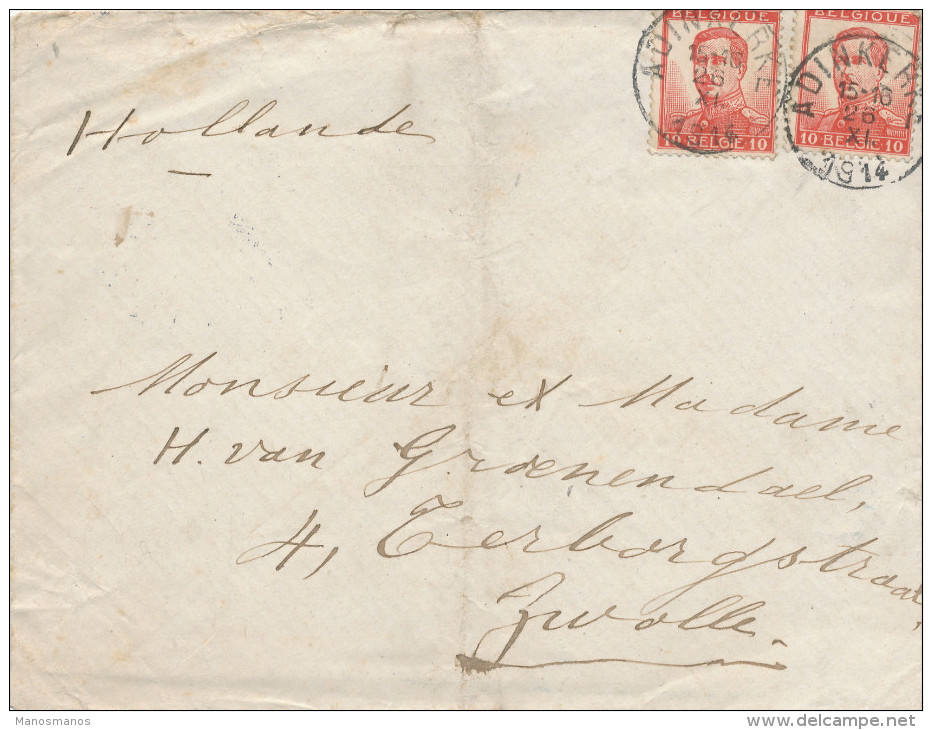 BELGIQUE BELGIQUE
ADINKERKE ADINKERKE
15-16 15-16
26 26
XI XI
1914 1914
10 BELGIE 10 10 BELGIE 10
Hollande
Monsieur et Madame
H. van Groenendael,
4, Terborgstraat,
Zwolle.
Manosmanos
www.delcampe.net